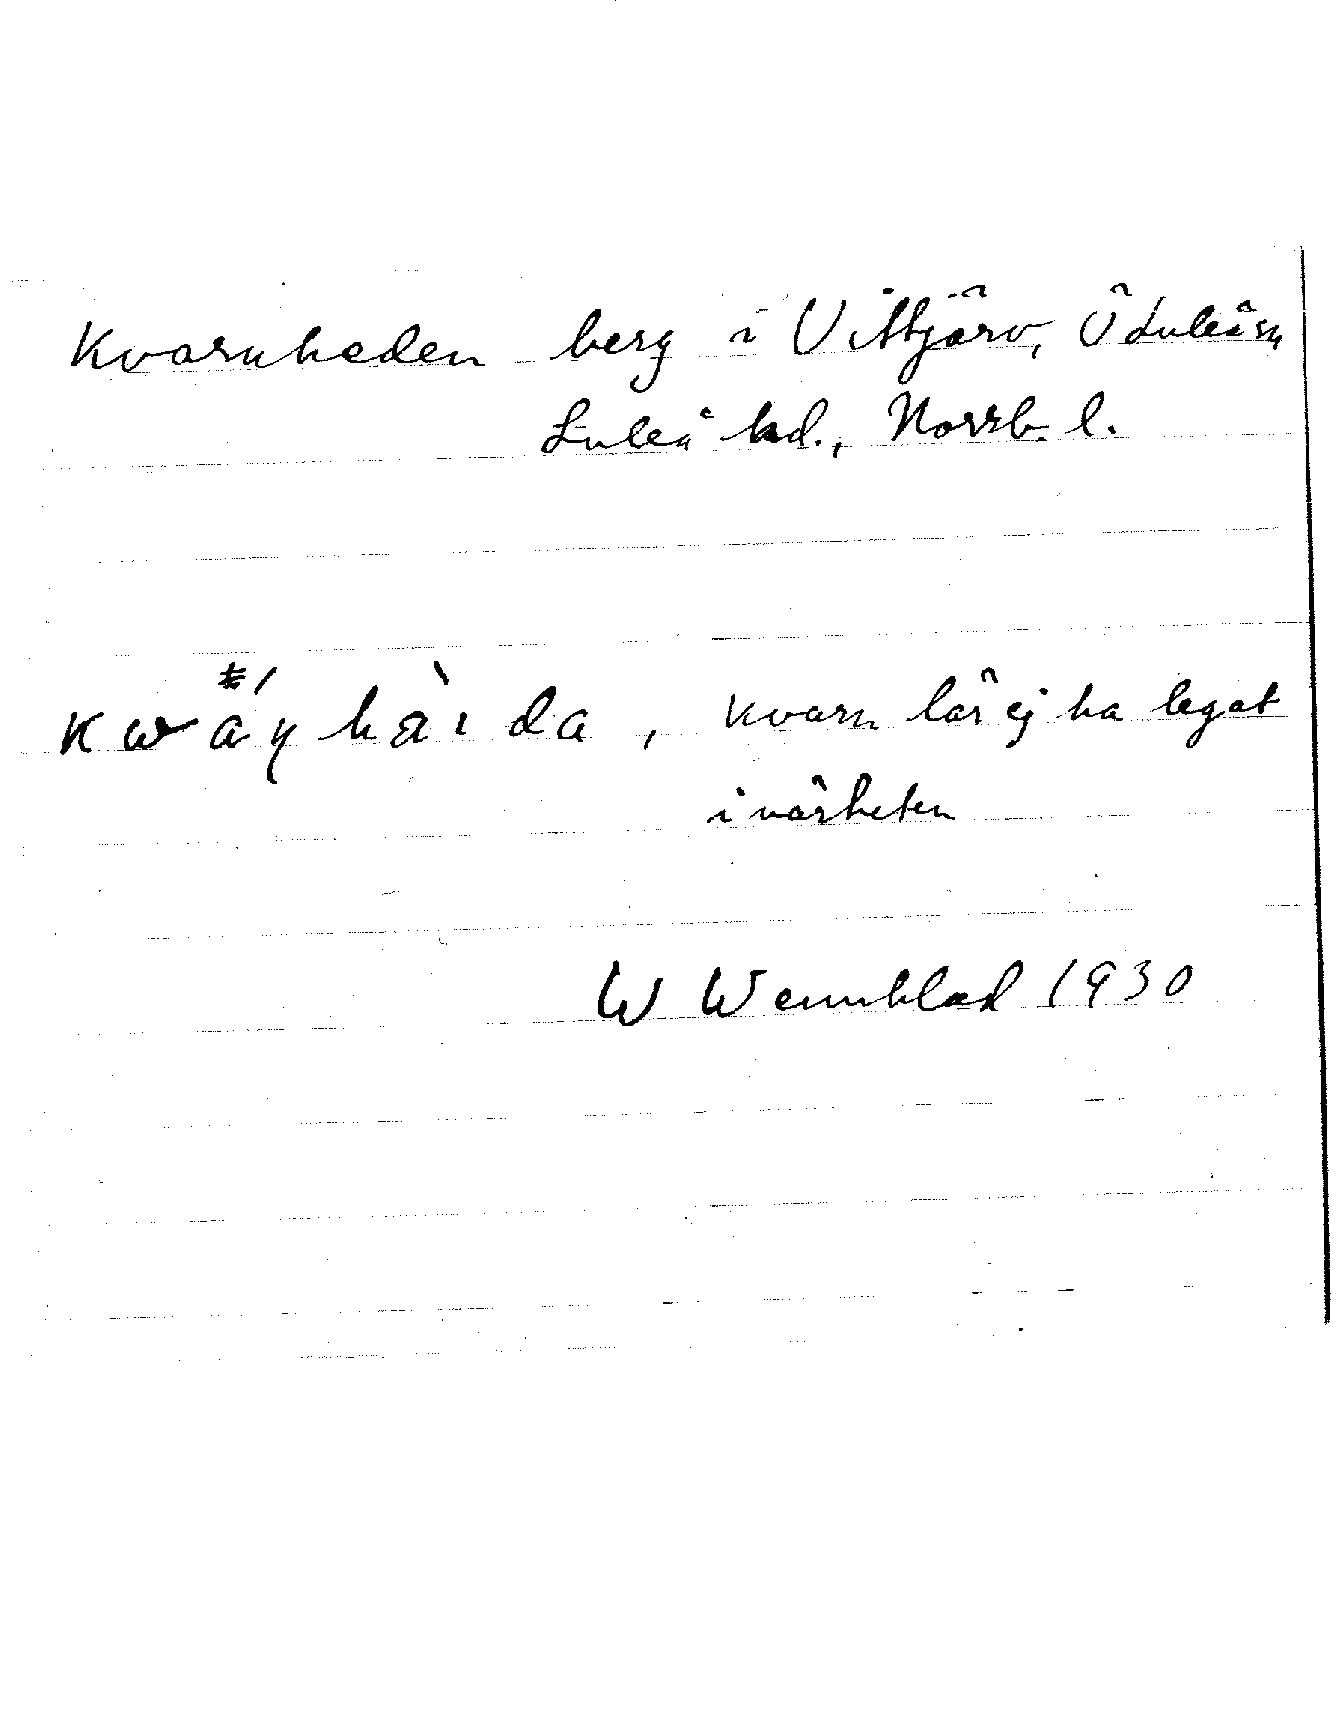 Kvarnheden berg i Vittjärv, Ö Luleå sn,
Luleå hd., Norrb. l.
kwáṇhàida, kvarn lär ej ha legat
i närheten
W Wennblad 1930